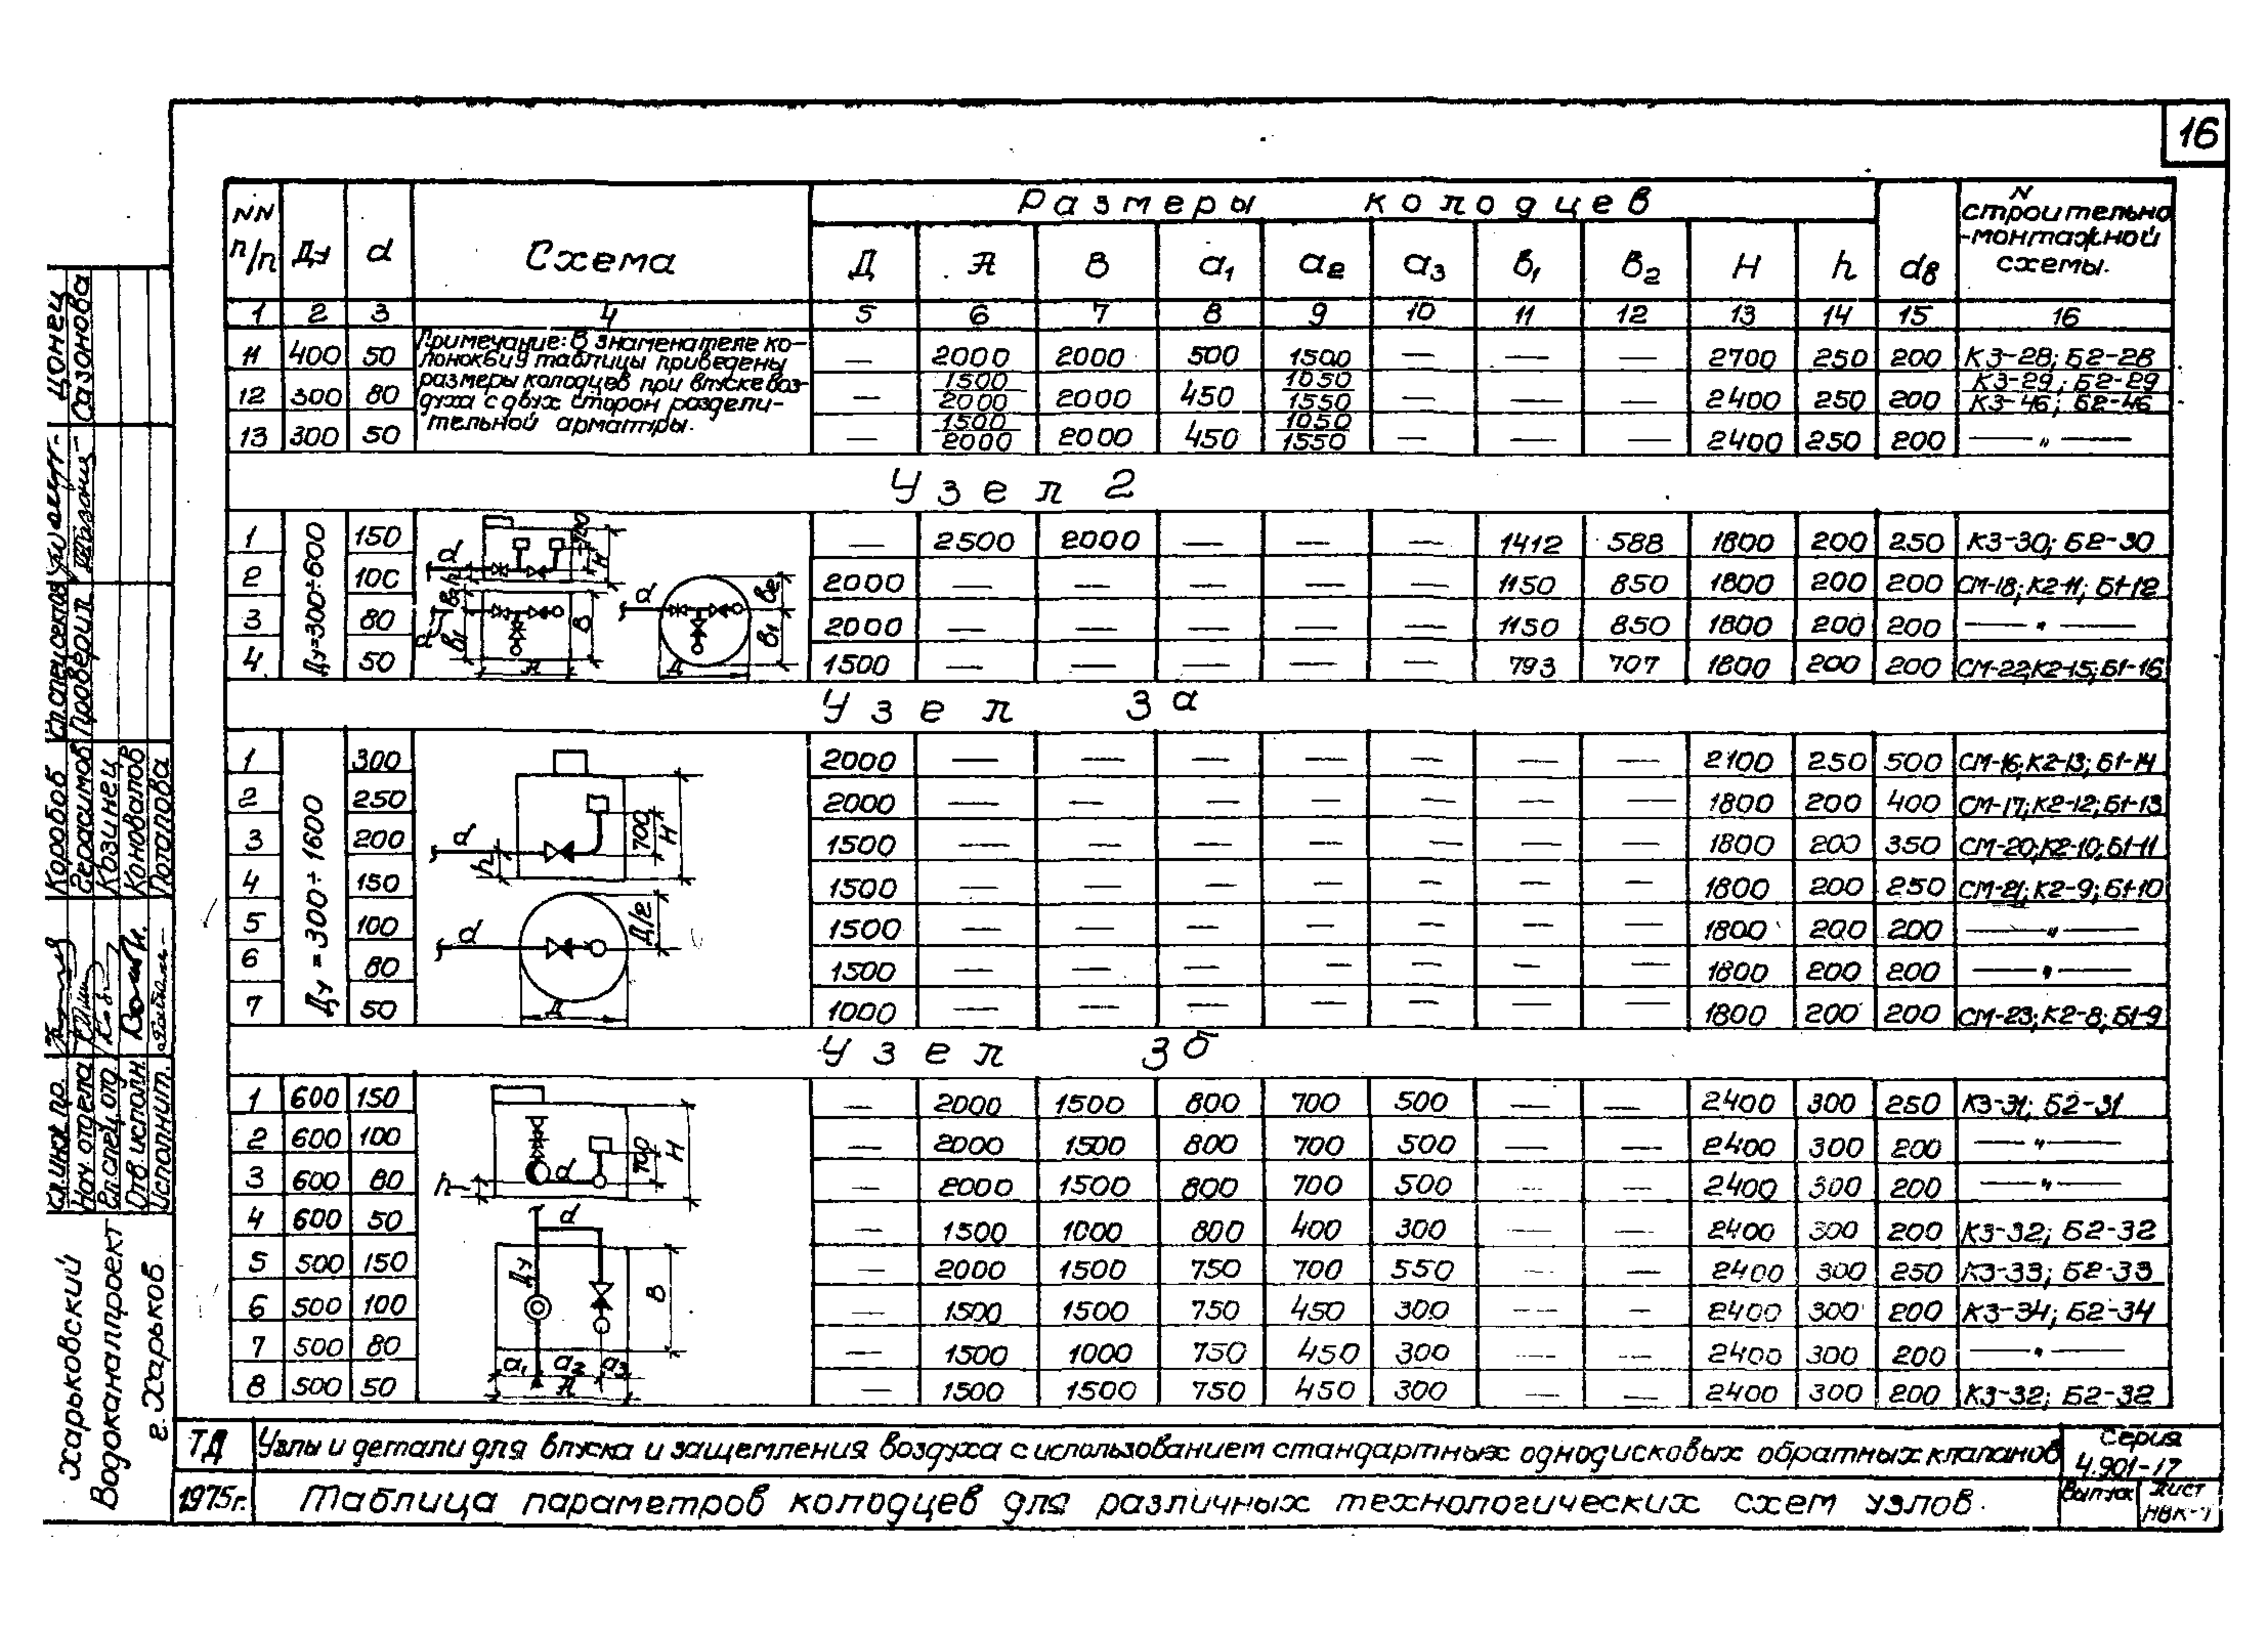 16
NN п/п | Ду | d | Схема | Размеры колодцев | dв | N строительно-монтажной схемы.
Д | А | В | а1 | а2 | а3 | в1 | в2 | Н | h
1 | 2 | 3 | 4 | 5 | 6 | 7 | 8 | 9 | 10 | 11 | 12 | 13 | 14 | 15 | 16
Примечание: В знаменателе ко-
лонок 6 и 9 таблицы приведены
размеры колодцев при впуске воз-
духа с двух сторон раздели-
тельной арматуры.
11 | 400 | 50 | — | 2000 | 2000 | 500 | 1500 | — | — | — | 2700 | 250 | 200 | К3-28; Б2-28
12 | 300 | 80 | — | 1500/2000 | 2000 | 450 | 1050/1550 | — | — | — | 2400 | 250 | 200 | К3-29; Б2-29 / К3-46; Б2-46
13 | 300 | 50 | — | 1500/2000 | 2000 | 450 | 1050/1550 | — | — | — | 2400 | 250 | 200 | —"—
Узел 2
Ду=300÷600
1 | 150 | — | 2500 | 2000 | — | — | — | 1412 | 588 | 1800 | 200 | 250 | К3-30; Б2-30
2 | 100 | 2000 | — | — | — | — | — | 1150 | 850 | 1800 | 200 | 200 | СМ-18; К2-11; Б1-12
3 | 80 | 2000 | — | — | — | — | — | 1150 | 850 | 1800 | 200 | 200 | —"—
4 | 50 | 1500 | — | — | — | — | — | 793 | 707 | 1800 | 200 | 200 | СМ-22; К2-15; Б1-16
d 700 H h в2 d в1 В А
d в2 в1 Д
Узел 3а
Ду = 300÷1600
1 | 300 | 2000 | — | — | — | — | — | — | — | 2100 | 250 | 500 | СМ-16; К2-13; Б1-14
2 | 250 | 2000 | — | — | — | — | — | — | — | 1800 | 200 | 400 | СМ-17; К2-12; Б1-13
3 | 200 | 1500 | — | — | — | — | — | — | — | 1800 | 200 | 350 | СМ-20; К2-10; Б1-11
4 | 150 | 1500 | — | — | — | — | — | — | — | 1800 | 200 | 250 | СМ-21; К2-9; Б1-10
5 | 100 | 1500 | — | — | — | — | — | — | — | 1800 | 200 | 200 | —"—
6 | 80 | 1500 | — | — | — | — | — | — | — | 1800 | 200 | 200 | —"—
7 | 50 | 1000 | — | — | — | — | — | — | — | 1800 | 200 | 200 | СМ-23; К2-8; Б1-9
d h 700 H
d Д/2 Д
Узел 3б
1 | 600 | 150 | — | 2000 | 1500 | 800 | 700 | 500 | — | — | 2400 | 300 | 250 | К3-31; Б2-31
2 | 600 | 100 | — | 2000 | 1500 | 800 | 700 | 500 | — | — | 2400 | 300 | 200 | —"—
3 | 600 | 80 | — | 2000 | 1500 | 800 | 700 | 500 | — | — | 2400 | 300 | 200 | —"—
4 | 600 | 50 | — | 1500 | 1000 | 800 | 400 | 300 | — | — | 2400 | 300 | 200 | К3-32; Б2-32
5 | 500 | 150 | — | 2000 | 1500 | 750 | 700 | 550 | — | — | 2400 | 300 | 250 | К3-33; Б2-33
6 | 500 | 100 | — | 1500 | 1500 | 750 | 450 | 300 | — | — | 2400 | 300 | 200 | К3-34; Б2-34
7 | 500 | 80 | — | 1500 | 1000 | 750 | 450 | 300 | — | — | 2400 | 300 | 200 | —"—
8 | 500 | 50 | — | 1500 | 1500 | 750 | 450 | 300 | — | — | 2400 | 300 | 200 | К3-32; Б2-32
h d 700 H
d Ду В а1 а2 а3 А
ТД | Узлы и детали для впуска и защемления воздуха с использованием стандартных однодисковых обратных клапанов | Серия 4.901-17
1975г. | Таблица параметров колодцев для различных технологических схем узлов. | Выпуск | Лист НВК-7
Цонец
Сазонова
Гл.спец.сектора
Проверил
Коробов
Герасимов
Козинец
Коновалов
Потапова
Гл.инж.пр.
Нач.отдела
Гл.спец.отд.
Отв.исполн.
Исполнит.
Харьковский
Водоканалпроект
г. Харьков